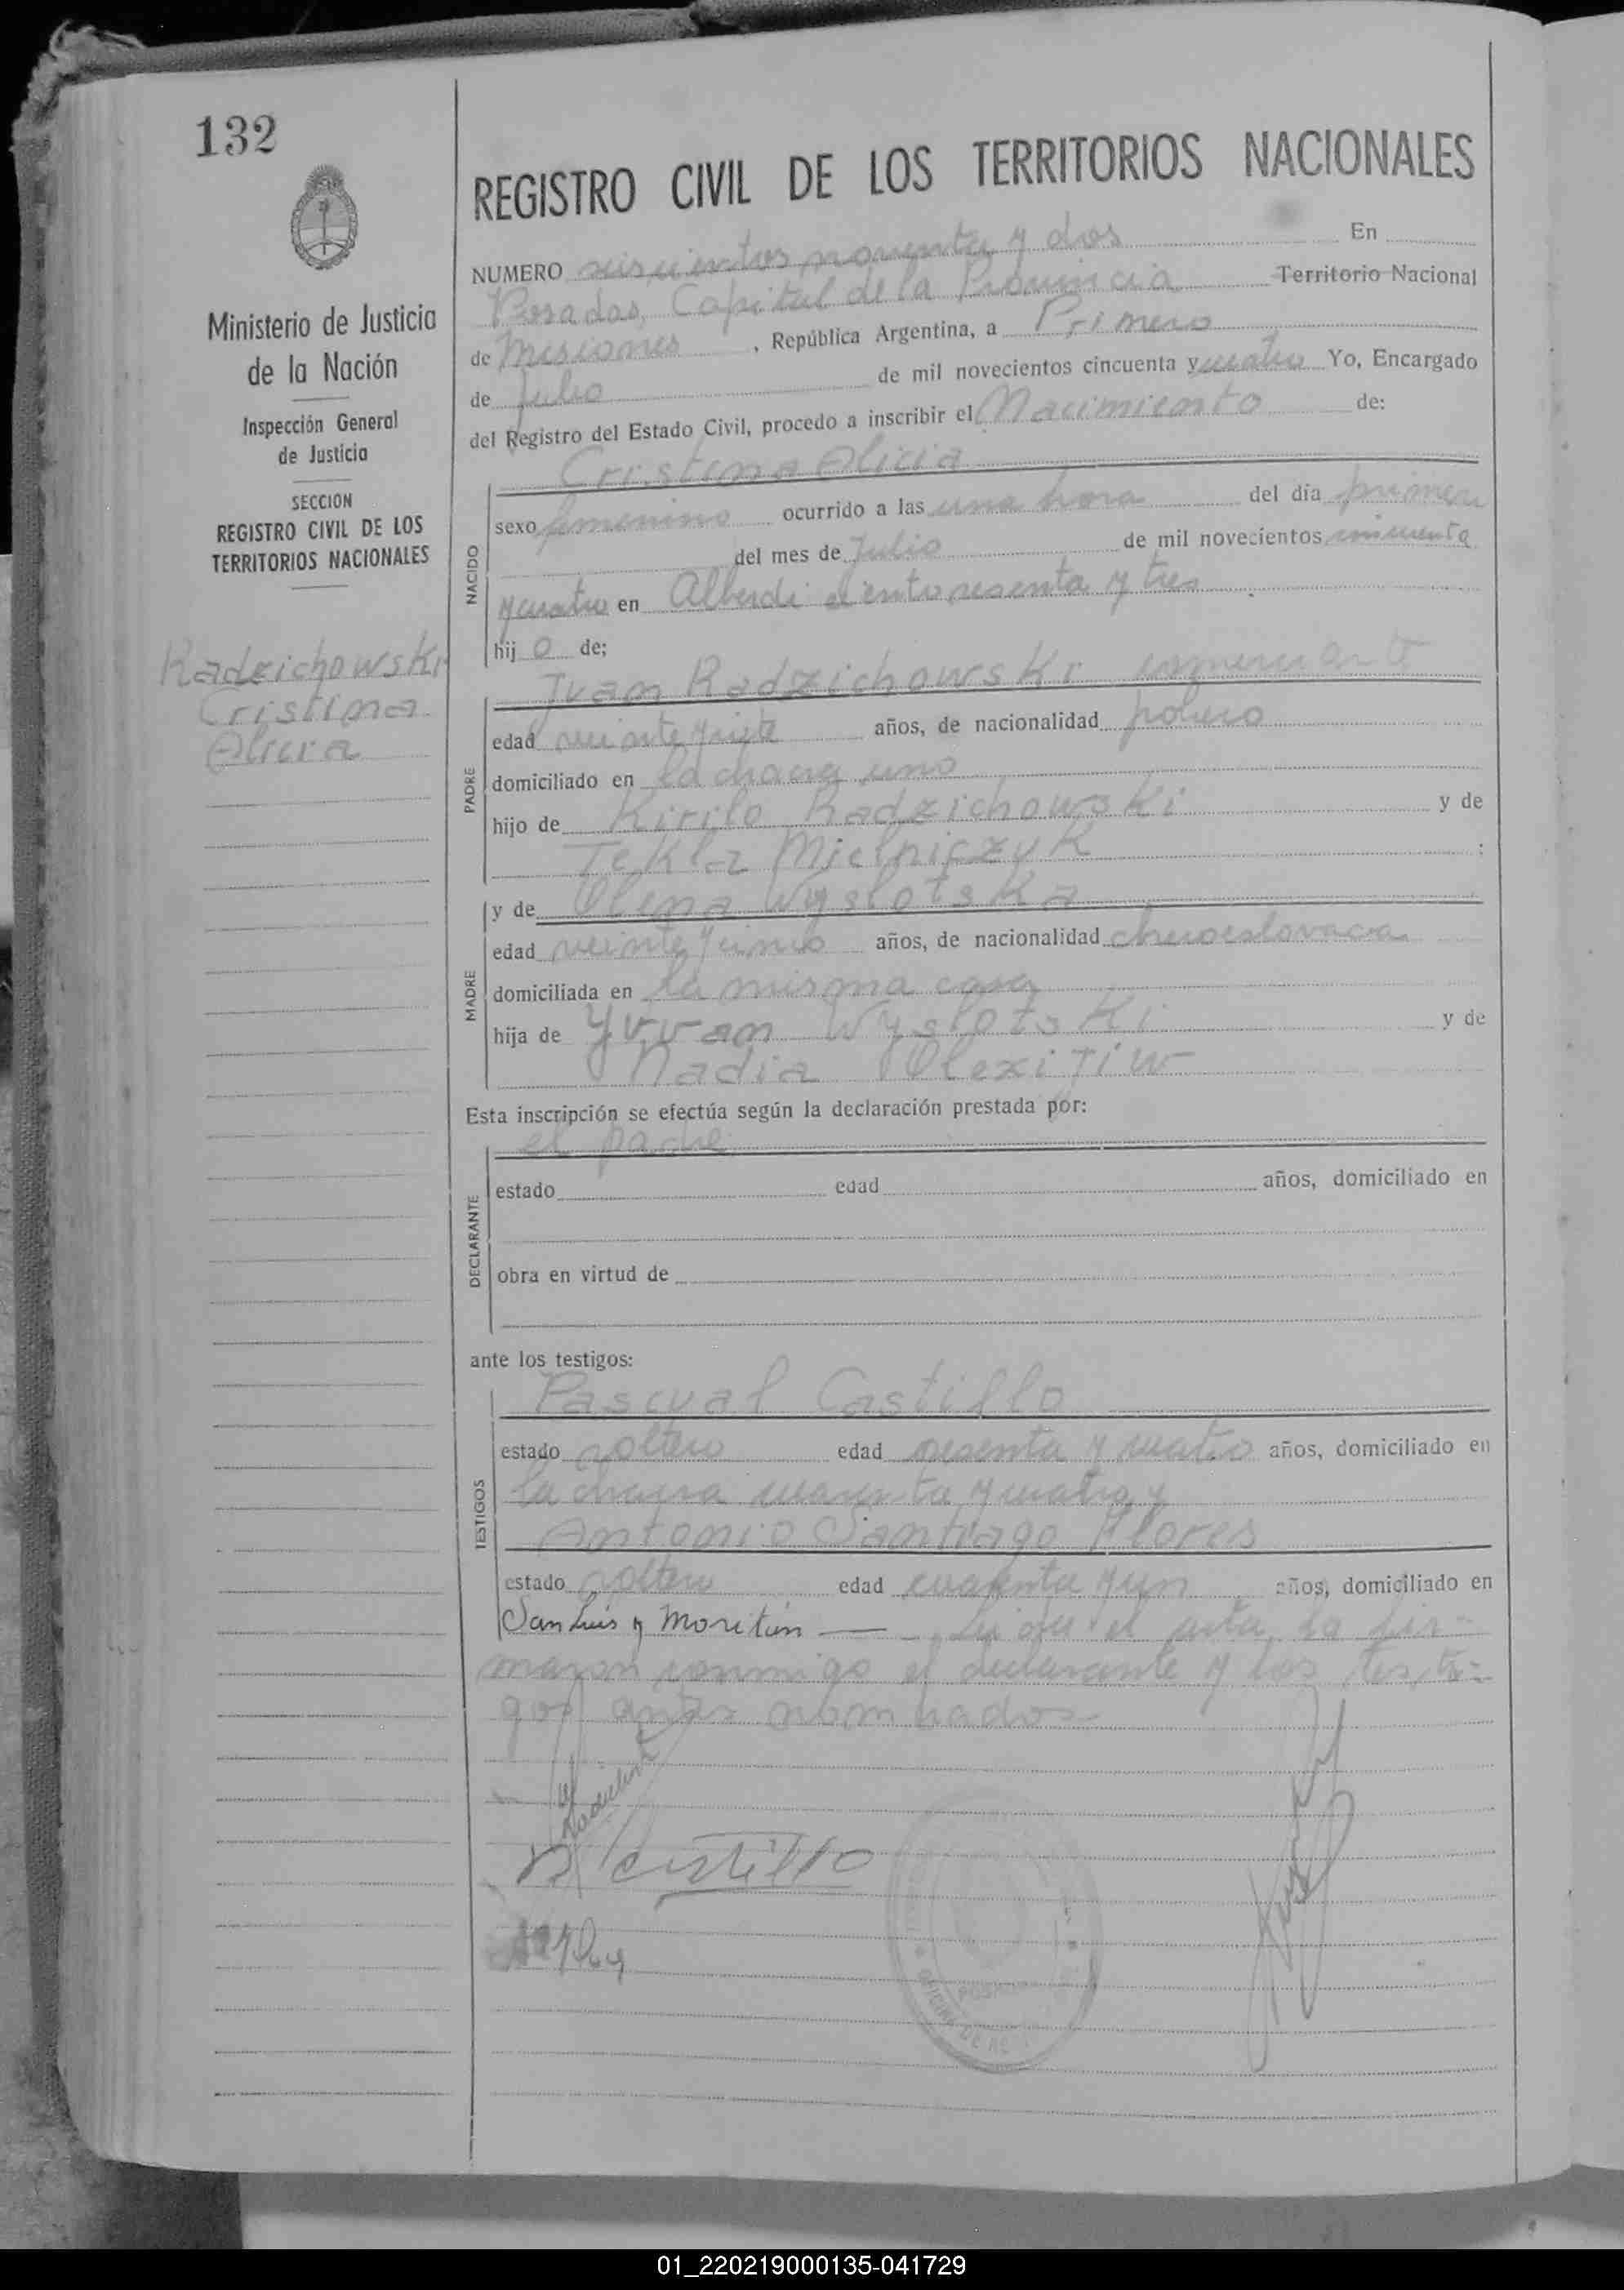 132
Ministerio de Justicia
de la Nación
Inspección General
de Justicia
SECCION
REGISTRO CIVIL DE LOS
TERRITORIOS NACIONALES
Radzichowski
Cristina
Alicia
REGISTRO CIVIL DE LOS TERRITORIOS NACIONALES
NUMERO seiscientos noventa y dos En
Posadas, Capital de la Provincia Territorio Nacional
de Misiones, República Argentina, a Primero
de Julio de mil novecientos cincuenta y cuatro Yo, Encargado
del Registro del Estado Civil, procedo a inscribir el Nacimiento de:
Cristina Alicia
NACIDO
sexo femenino ocurrido a las una hora del día primero
del mes de Julio de mil novecientos cincuenta
y cuatro en Alberdi ciento sesenta y tres
hij a de;
PADRE
Ivan Radzichowski comerciante
edad veinte y siete años, de nacionalidad polaco
domiciliado en la chacra uno
hijo de Kirilo Radzichowski y de
Tekla Mielniczyk ;
MADRE
y de Olena Wyslotska
edad veinte y cinco años, de nacionalidad checoeslovaca
domiciliada en la misma casa
hija de Yvvan Wyslotski y de
Nadia Olexitiw
Esta inscripción se efectúa según la declaración prestada por:
el padre
DECLARANTE
estado edad años, domiciliado en
obra en virtud de
ante los testigos:
TESTIGOS
Pascual Castillo
estado soltero edad sesenta y cuatro años, domiciliado en
la chacra cuarenta y cuatro y
Antonio Santiago Flores
estado soltero edad cuarenta y un años, domiciliado en
San Luis y Moritán — Leída el acta, la fir-
maron conmigo el declarante y los testi-
gos antes nombrados
Castillo
POSADAS
OFICINA DE RE
01_220219000135-041729